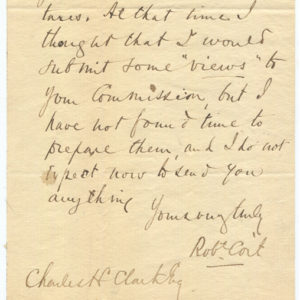 taxes. At that time I
thought that I would
submit some "views" to
your Commission, but I
have not found time to
prepare them, and I do not
expect now to send you
anything
Yours very truly
Robt. Coit
Charles H. Clark Esq